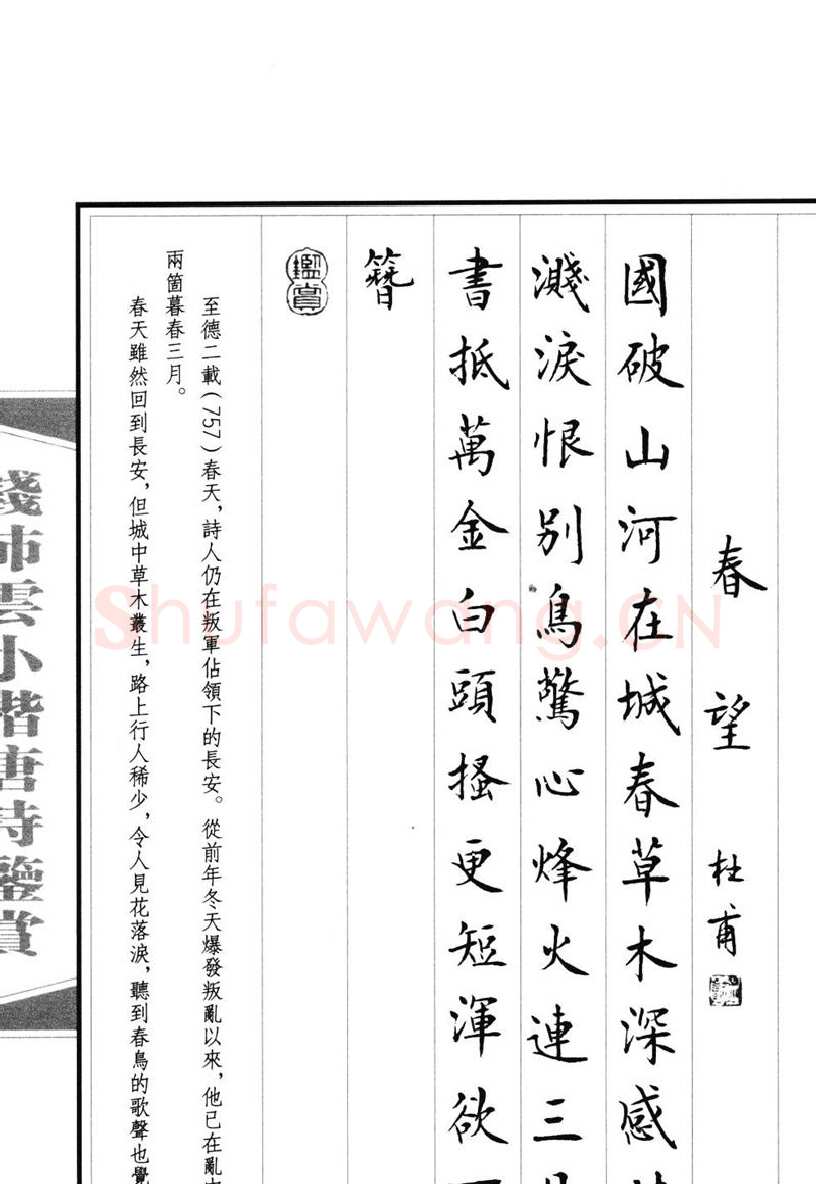 春望 杜甫
國破山河在城春草木深感
濺淚恨別鳥驚心烽火連三
書抵萬金白頭搔更短渾欲
簪
鑑賞
至德二載(757)春天,詩人仍在叛軍佔領下的長安。從前年冬天爆發叛亂以來,他已在亂
兩箇暮春三月。
春天雖然回到長安,但城中草木叢生,路上行人稀少,令人見花落淚,聽到春鳥的歌聲也覺
錢沛雲小楷唐詩鑒賞
Shufawang.CN